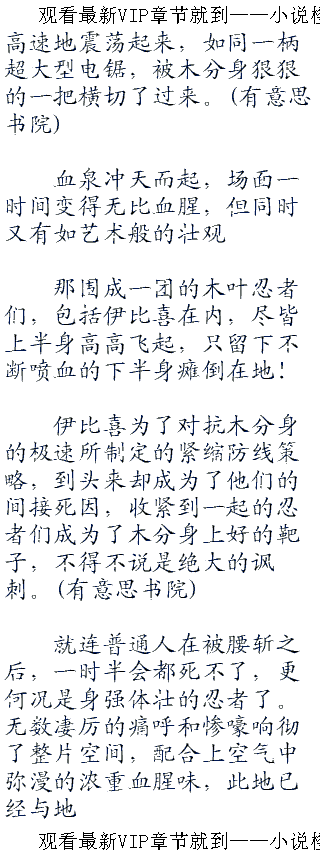 观看最新VIP章节就到——小说检
高速地震荡起来，如同一柄
超大型电锯，被木分身狠狠
的一把横切了过来。(有意思
书院)
血泉冲天而起，场面一
时间变得无比血腥，但同时
又有如艺术般的壮观
那围成一团的木叶忍者
们，包括伊比喜在内，尽皆
上半身高高飞起，只留下不
断喷血的下半身瘫倒在地！
伊比喜为了对抗木分身
的极速所制定的紧缩防线策
略，到头来却成为了他们的
间接死因，收紧到一起的忍
者们成为了木分身上好的靶
子，不得不说是绝大的讽
刺。(有意思书院)
就连普通人在被腰斩之
后，一时半会都死不了，更
何况是身强体壮的忍者了。
无数凄厉的痛呼和惨嚎响彻
了整片空间，配合上空气中
弥漫的浓重血腥味，此地已
经与地
观看最新VIP章节就到——小说检